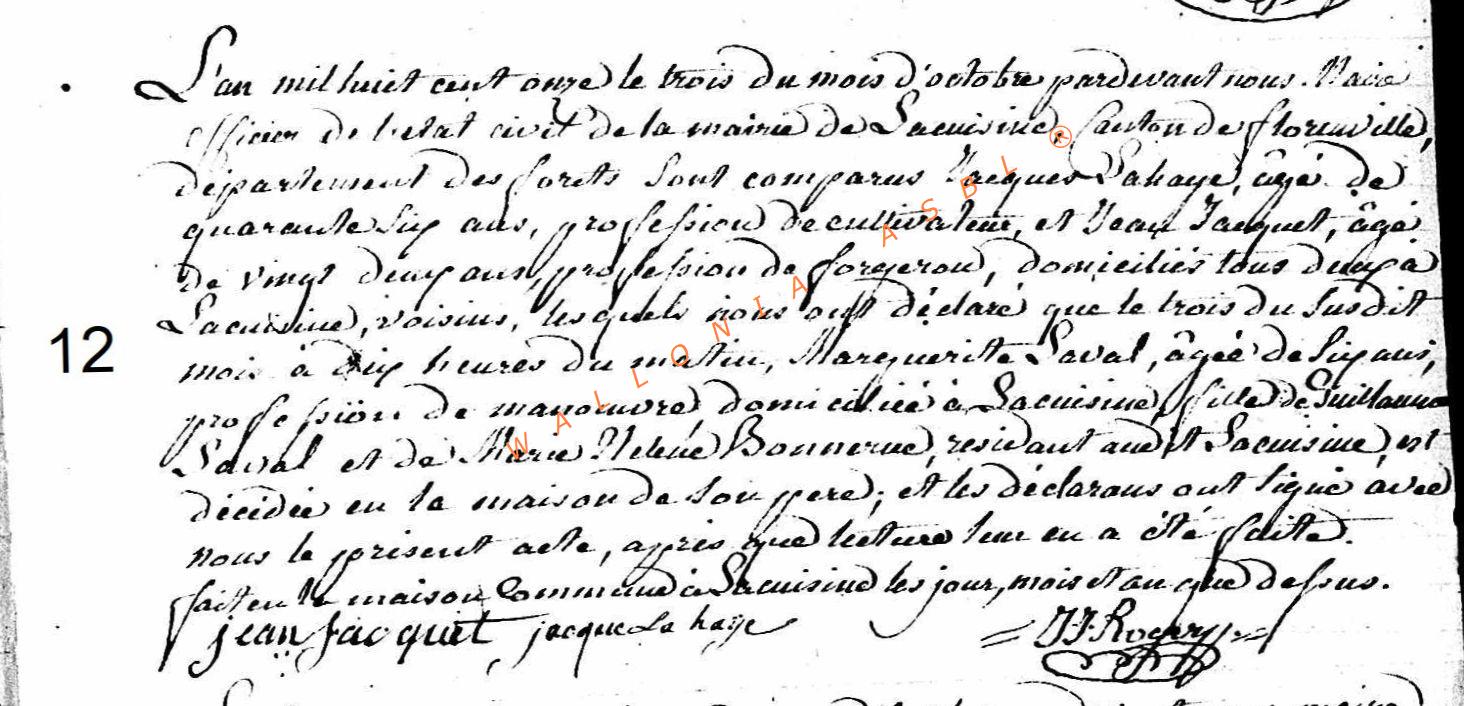 L'an mil huit cent onze le trois du mois d'octobre pardevant nous Maire
officier de l'etat civil de la mairie de Lacuisine, Canton de florenville,
département des forets sont comparus Jacques Lahaye, âgé de
quarante six ans, profession de cultivateur, et Jean Jacquet, âgé
de vingt deux ans, profession de forgeron, domiciliés tous deux à
Lacuisine, voisins, lesquels nous ont déclaré que le trois du susdit
12
mois à dix heures du matin, Marguerite Laval, âgée de six ans,
profession de manoeuvre, domiciliée à Lacuisine, fille de Guillaume
Laval et de Marie Helene Bonnerue, residant audit Lacuisine, est
décédée en la maison de son pere; et les déclarans ont signé avec
nous le présent acte, après que lecture leur en a été faite.
fait en la maison Commune à Lacuisine les jour, mois et an que dessus.
jean Jacquet jacque La haye J.J. Rogery
WALLONIA ASBL ®